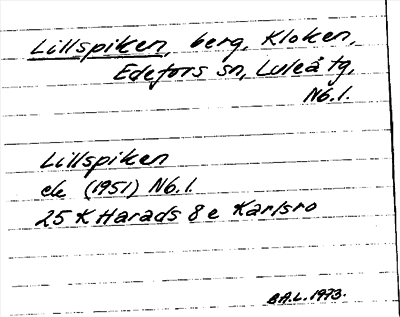 Lillspiken, berg, Kloken,
Edefors sn, Luleå tg,
Nb.l.
Lillspiken
ek (1951) Nb.l.
25 K Harads 8 e Karlsro
B.A.L. 1973.